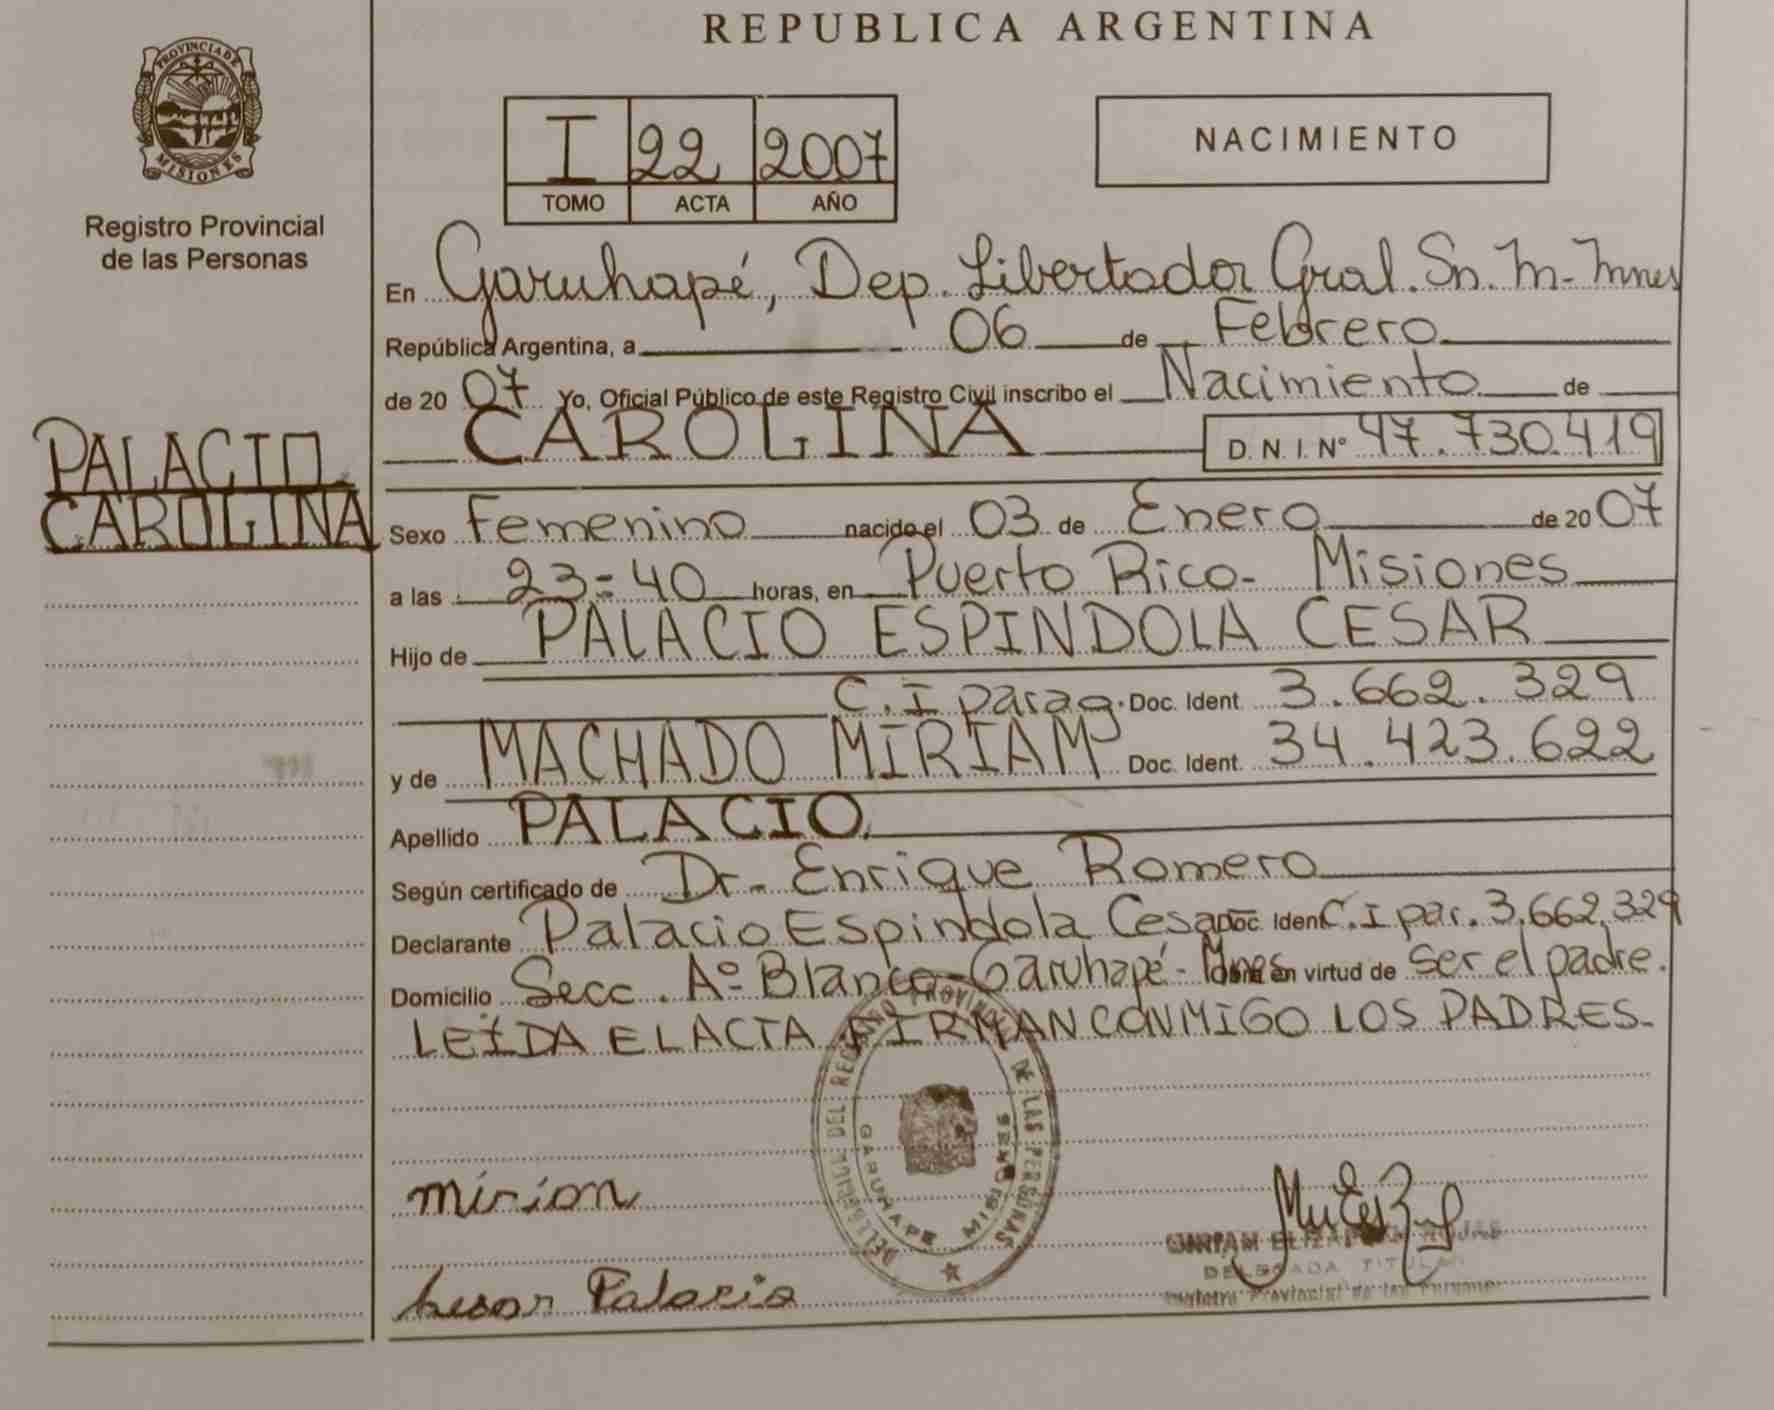 REPUBLICA ARGENTINA
PROVINCIA DE
MISIONES
Registro Provincial
de las Personas
I 22 2007
TOMO ACTA AÑO
NACIMIENTO
En Garuhapé, Dep. Libertador Gral. Sn. M- Mnes
República Argentina, a 06 de Febrero
de 20 07 Yo, Oficial Público de este Registro Civil inscribo el Nacimiento de
CAROLINA D. N. I. Nº 47.730.419
PALACIO
CAROLINA
Sexo Femenino nacido el 03 de Enero de 20 07
a las 23=40 horas, en Puerto Rico- Misiones
Hijo de PALACIO ESPINDOLA CESAR
C.I parag. Doc. Ident. 3.662.329
y de MACHADO MIRIAM Doc. Ident. 34.423.622
Apellido PALACIO.
Según certificado de Dr- Enrique Romero
Declarante Palacio Espindola Cesar Doc. Ident C.I par. 3.662.329
Domicilio Secc. Aº Blanco- Garuhapé- Mnes en virtud de ser el padre.
LEIDA EL ACTA FIRMAN CONMIGO LOS PADRES-
DEL REGISTRO PROVINCIAL DE LAS PERSONAS
GARUHAPE MISIONES
mirian
Palacio
DELEGADA TITULAR
Registro Provincial de las Personas